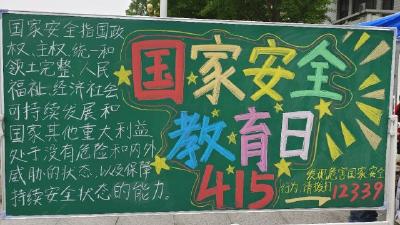 国家安全指国政
权、主权、统一和
领土完整、人民
福祉、经济社会
可持续发展和
国家其他重大利益
处于没有危险和内外
威胁的状态，以及保障
持续安全状态的能力。
国家安全
教育日
415
发现危害国家安全
行为，请拨打12339